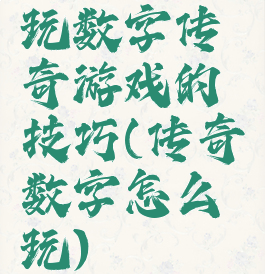 玩数字传
奇游戏的
技巧(传奇
数字怎么
玩)